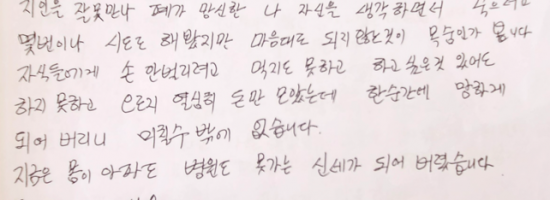 지인을 잘못만나 폐가 망신한 나 자신을 생각하면서 죽으려고
몇번이나 시도도 해 봤지만 마음대로 되지 안한것이 목숨인가 봅니다
자식들에게 손 안벌리려고 먹지도 못하고 하고 싶은것 있어도
하지 못하고 오로지 열심히 돈만 모았는데 한순간에 망하게
되어 버리니 미칠수 밖에 없습니다.
지금은 몸이 아파도 병원도 못가는 신세가 되어 버렸습니다